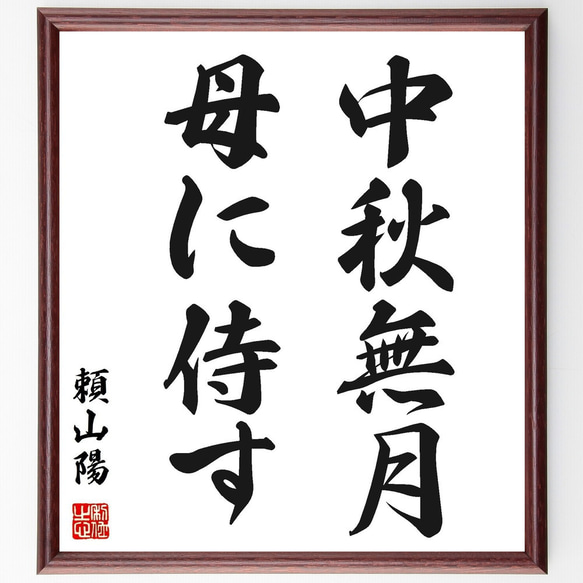 中秋無月
母に侍す
頼山陽